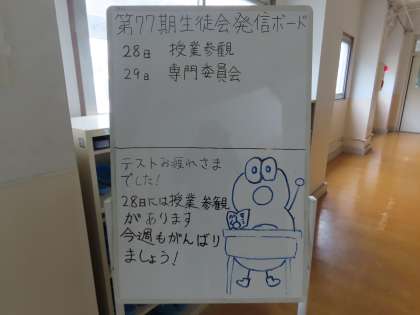 第77期生徒会発信ボード
28日 授業参観
29日 専門委員会
テストお疲れさま
でした!
28日には授業参観
があります
今週もがんばり
ましょう!